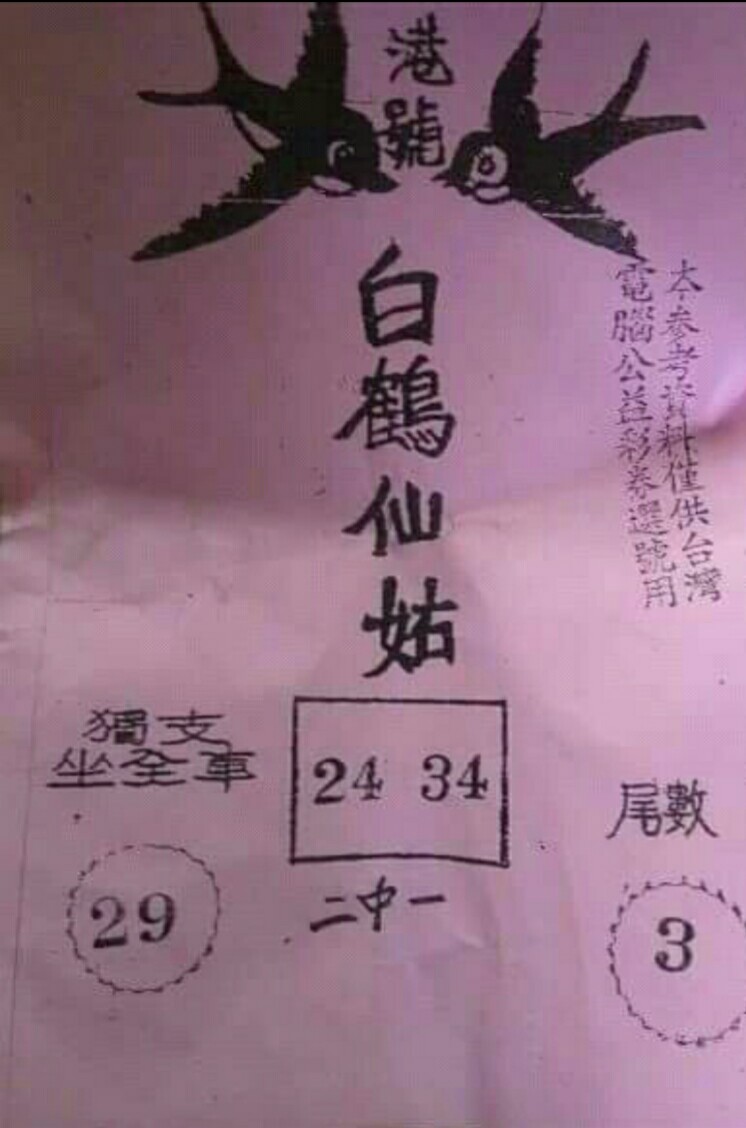 港號
白鶴仙姑
本參考資料僅供台灣
電腦公益彩券選號用
獨支
坐全車
29
24 34
二中一
尾數
3